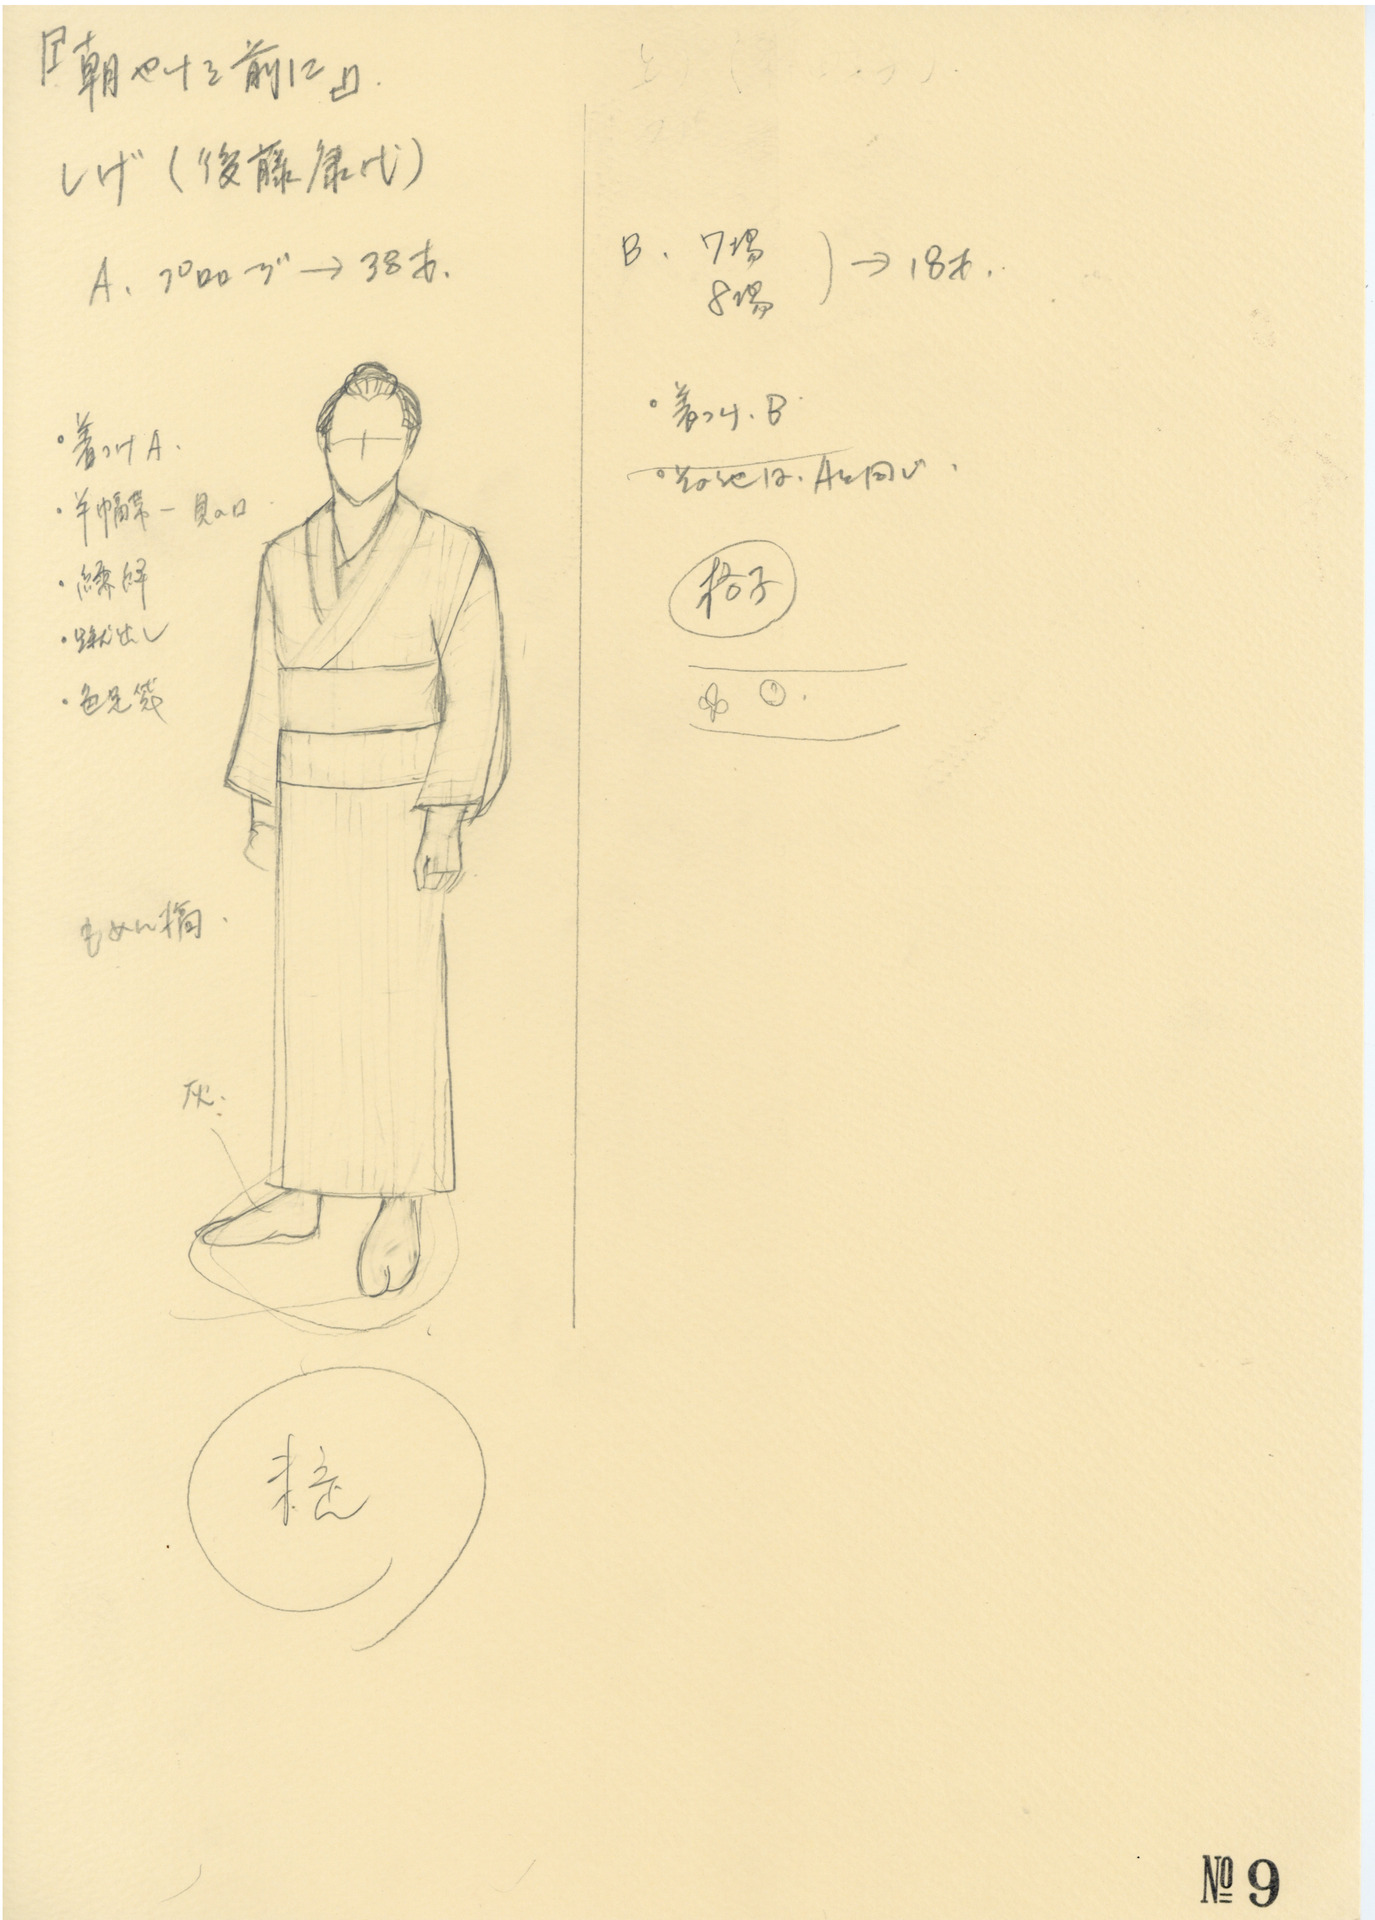 『朝やけを前に』.
しげ(後藤康代)
A. プロローグ→38才.
・着つけA.
・半幅帯ー貝の口
・襦袢
・蹴出し
・色足袋
もめん縞.
灰.
B. 7場
8場
→18才.
・着つけ.B
・その他は.Aと同じ.
格子
№9